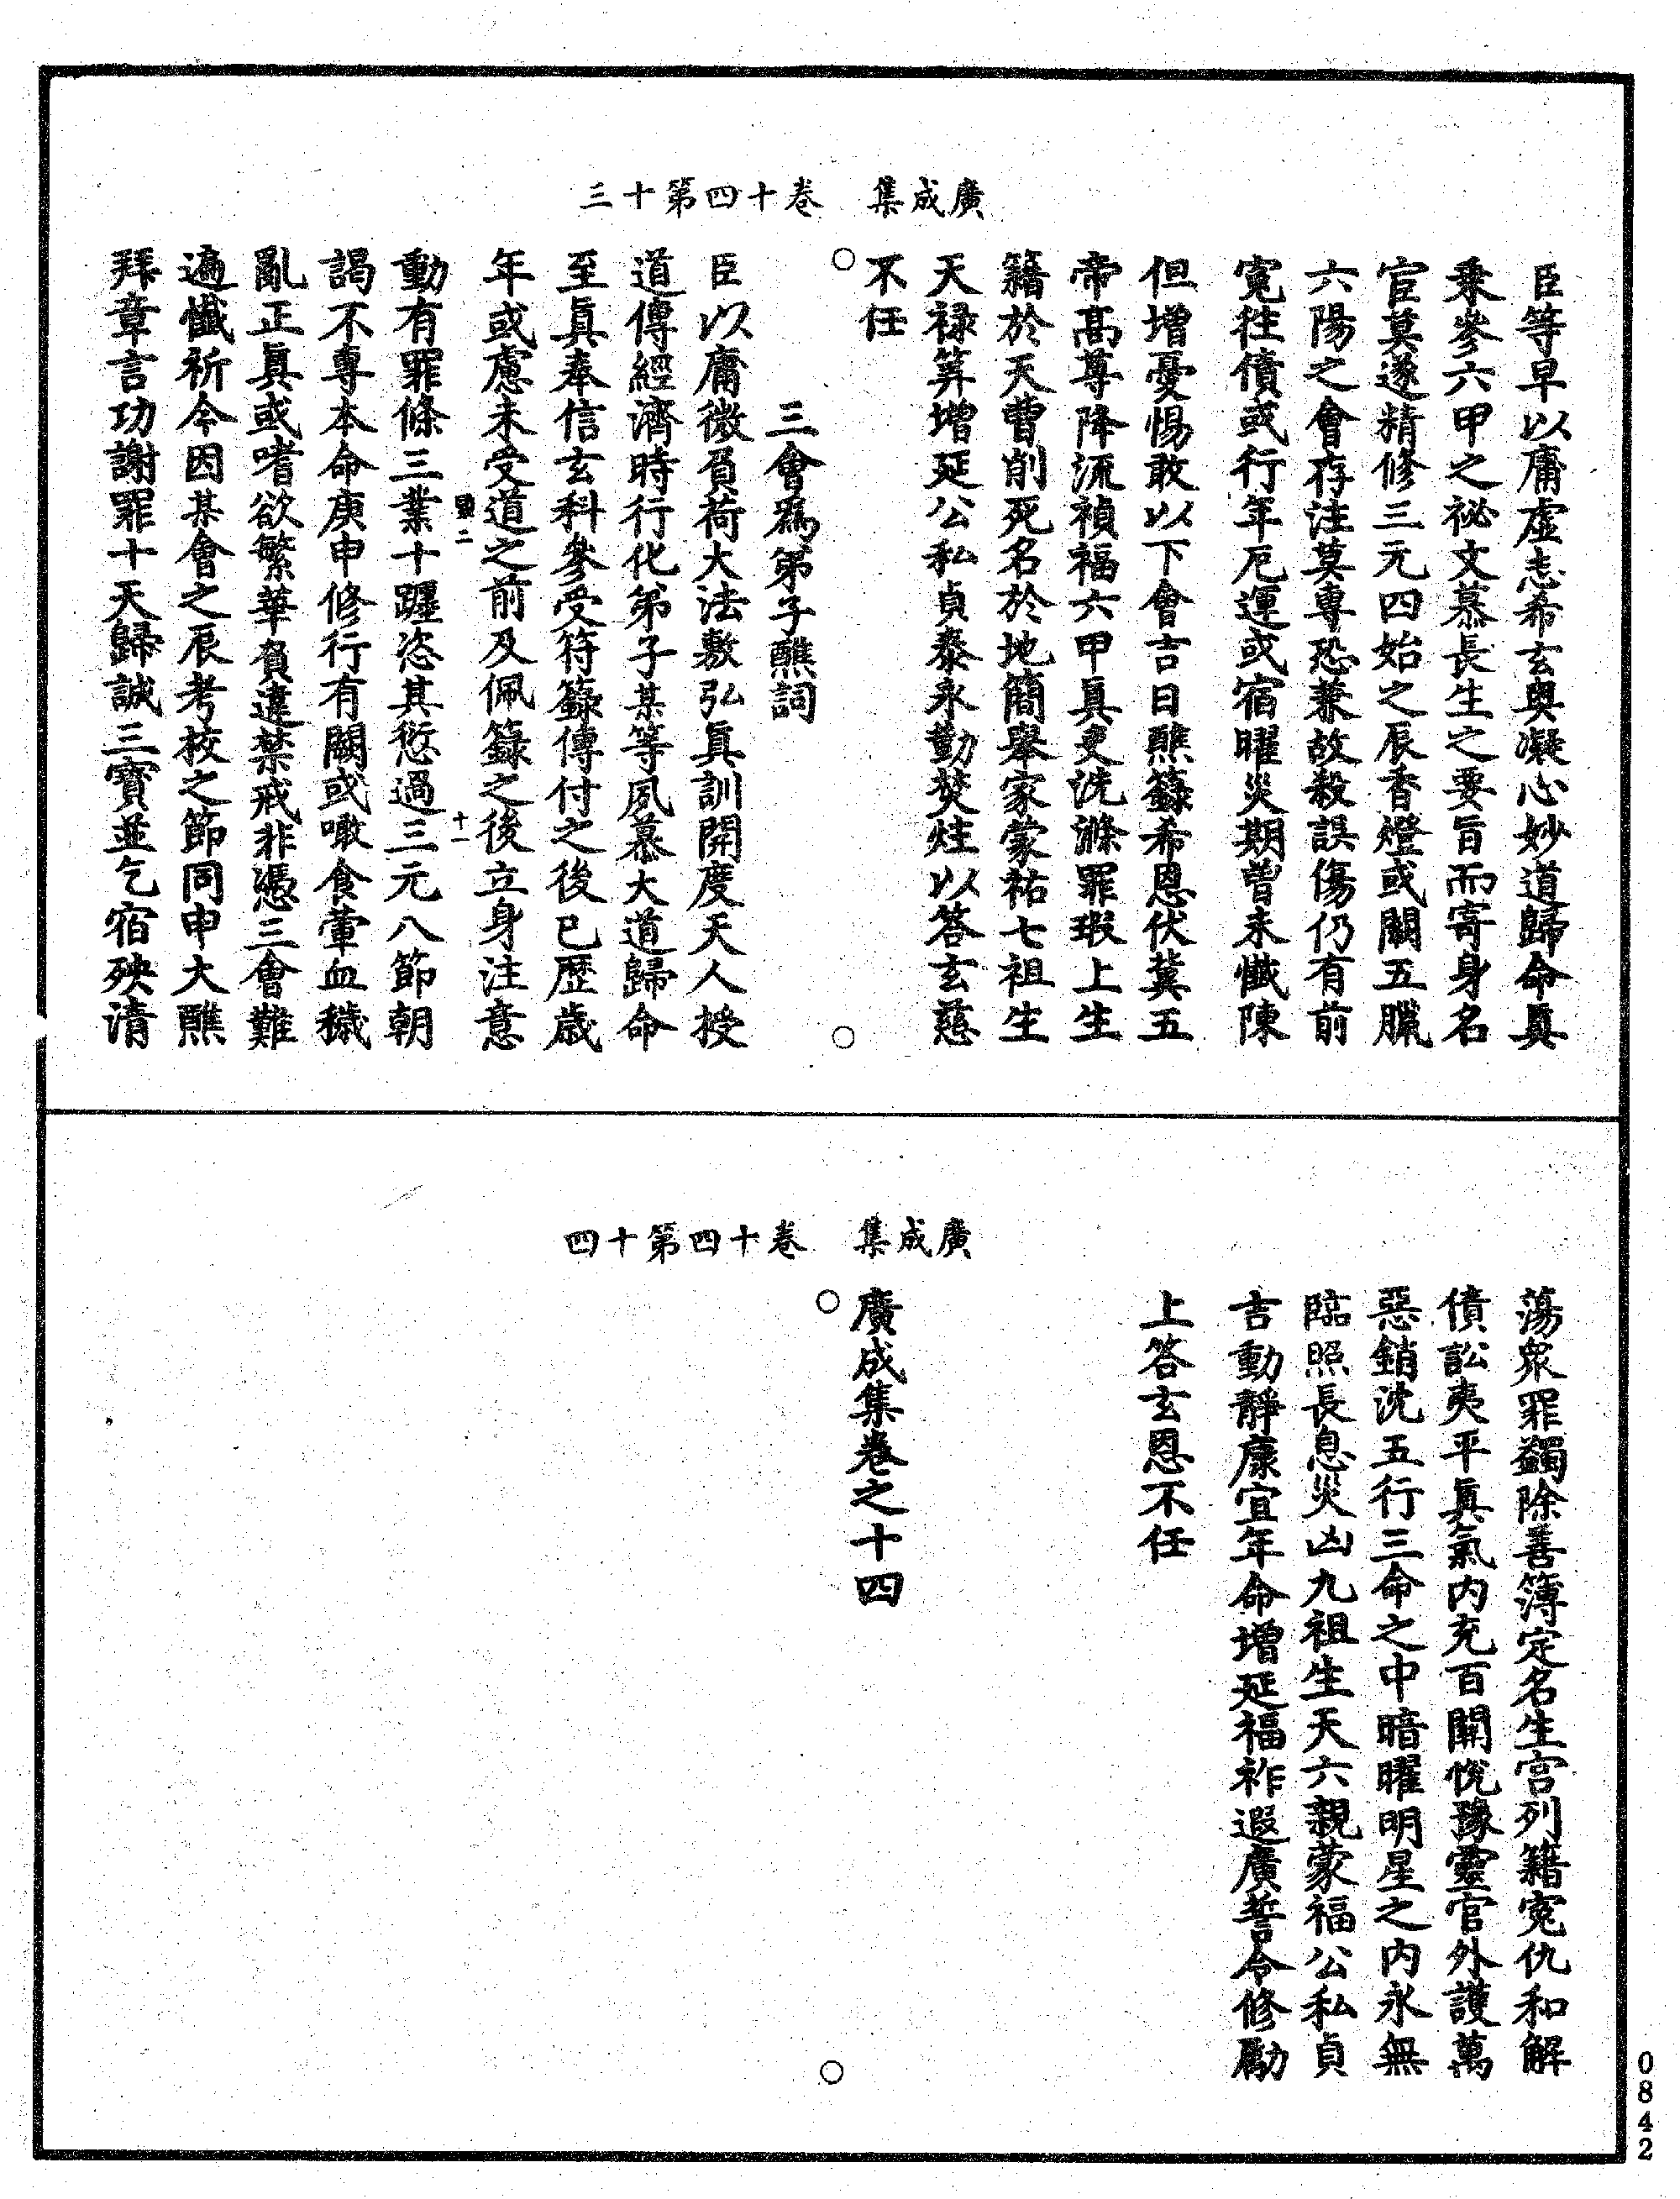 廣成集　卷十四第十三
臣等早以庸虛志希玄奧凝心妙道歸命眞
乘參六甲之祕文慕長生之要旨而寄身名
官莫遂精修三元四始之辰香燈或闕五臘
六陽之會存注莫專恐兼故殺誤傷仍有前
寃往債或行年厄運或宿曜災期曾未懺陳
但增憂惕敢以下會吉日醮籙希恩伏冀五
帝髙尊降流禎福六甲眞吏洗滌罪瑕上生
籍於天曹削死名於地簡舉家蒙祐七祖生
天禄筭增延公私貞泰永勤焚炷以答玄慈
不任
三會爲弟子醮詞
臣以庸微負荷大法敷弘眞訓開度天人授
道傳經濟時行化弟子某等夙慕大道歸命
至眞奉信玄科參受符籙傳付之後已歷歲
年或慮未受道之前及佩籙之後立身注意
二　十一
動有罪條三業十躔恣其愆過三元八節朝
謁不專本命庚申修行有闕或噉食葷血穢
亂正眞或嗜欲繁華負違禁戒非憑三會難
遍懺祈今因某會之辰考校之節同申大醮
拜章言功謝罪十天歸誠三寶並乞宿殃清
廣成集　卷十四第十四
蕩衆罪蠲除善簿定名生宫列籍寃仇和解
債訟夷平眞氣内充百關悅豫靈官外護萬
惡銷沈五行三命之中暗曜明星之内永無
臨照長息災凶九祖生天六親蒙福公私貞
吉動靜康宜年命增延福祚遐廣誓令修勵
上答玄恩不任
廣成集卷之十四
0842